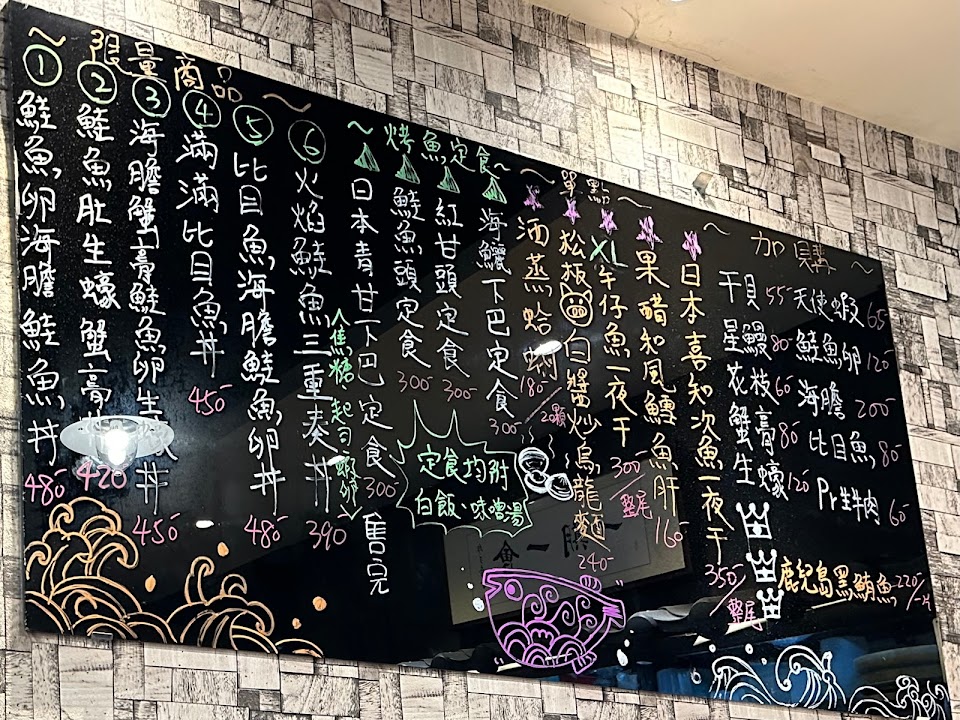 ~限量商品~
① 鮭魚卵海膽鮭魚丼 480
② 鮭魚肚生蠔蟹膏 420
③ 海膽蟹膏鮭魚卵生 丼 450
④ 滿滿比目魚丼 450
⑤ 比目魚海膽鮭魚卵丼 480
⑥ 火焰鮭魚三重奏丼 390
焦糖、起司、蝦卵
~烤魚定食~
日本青甘下巴定食 300 售完
鮭魚頭定食 300
紅甘頭定食 300
海鱺下巴定食 300
定食均附
白飯、味噌湯
單點~
酒蒸蛤蜊 180 20顆
松板白醬炒烏龍麵 240
XL午仔魚一夜干 300/整尾
果醋知風鱈魚肝 160
日本喜知次魚一夜干 350/整尾
~加購~
干貝 55
星鰻 80
花枝 60
蟹膏 80
生蠔 120
天使蝦 65
鮭魚卵 120
海膽 200
比目魚 80
Pr生牛肉 60
鹿兒島黑鮪魚 220/一片